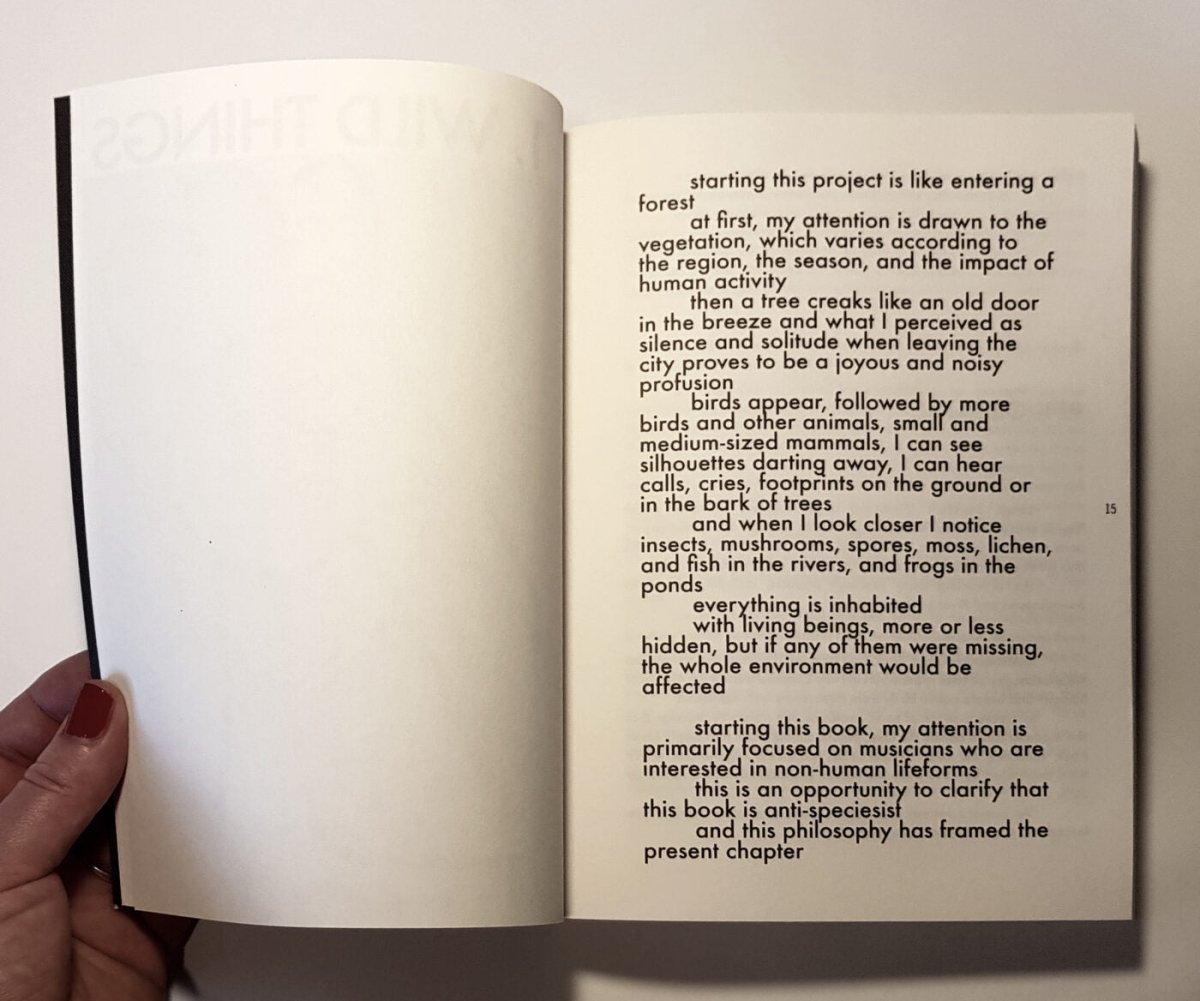 1. WILD THINGS
starting this project is like entering a
forest
at first, my attention is drawn to the
vegetation, which varies according to
the region, the season, and the impact of
human activity
then a tree creaks like an old door
in the breeze and what I perceived as
silence and solitude when leaving the
city proves to be a joyous and noisy
profusion
birds appear, followed by more
birds and other animals, small and
medium-sized mammals, I can see
silhouettes darting away, I can hear
calls, cries, footprints on the ground or
in the bark of trees
and when I look closer I notice
insects, mushrooms, spores, moss, lichen,
and fish in the rivers, and frogs in the
ponds
everything is inhabited
with living beings, more or less
hidden, but if any of them were missing,
the whole environment would be
affected
starting this book, my attention is
primarily focused on musicians who are
interested in non-human lifeforms
this is an opportunity to clarify that
this book is anti-speciesist
and this philosophy has framed the
present chapter
15